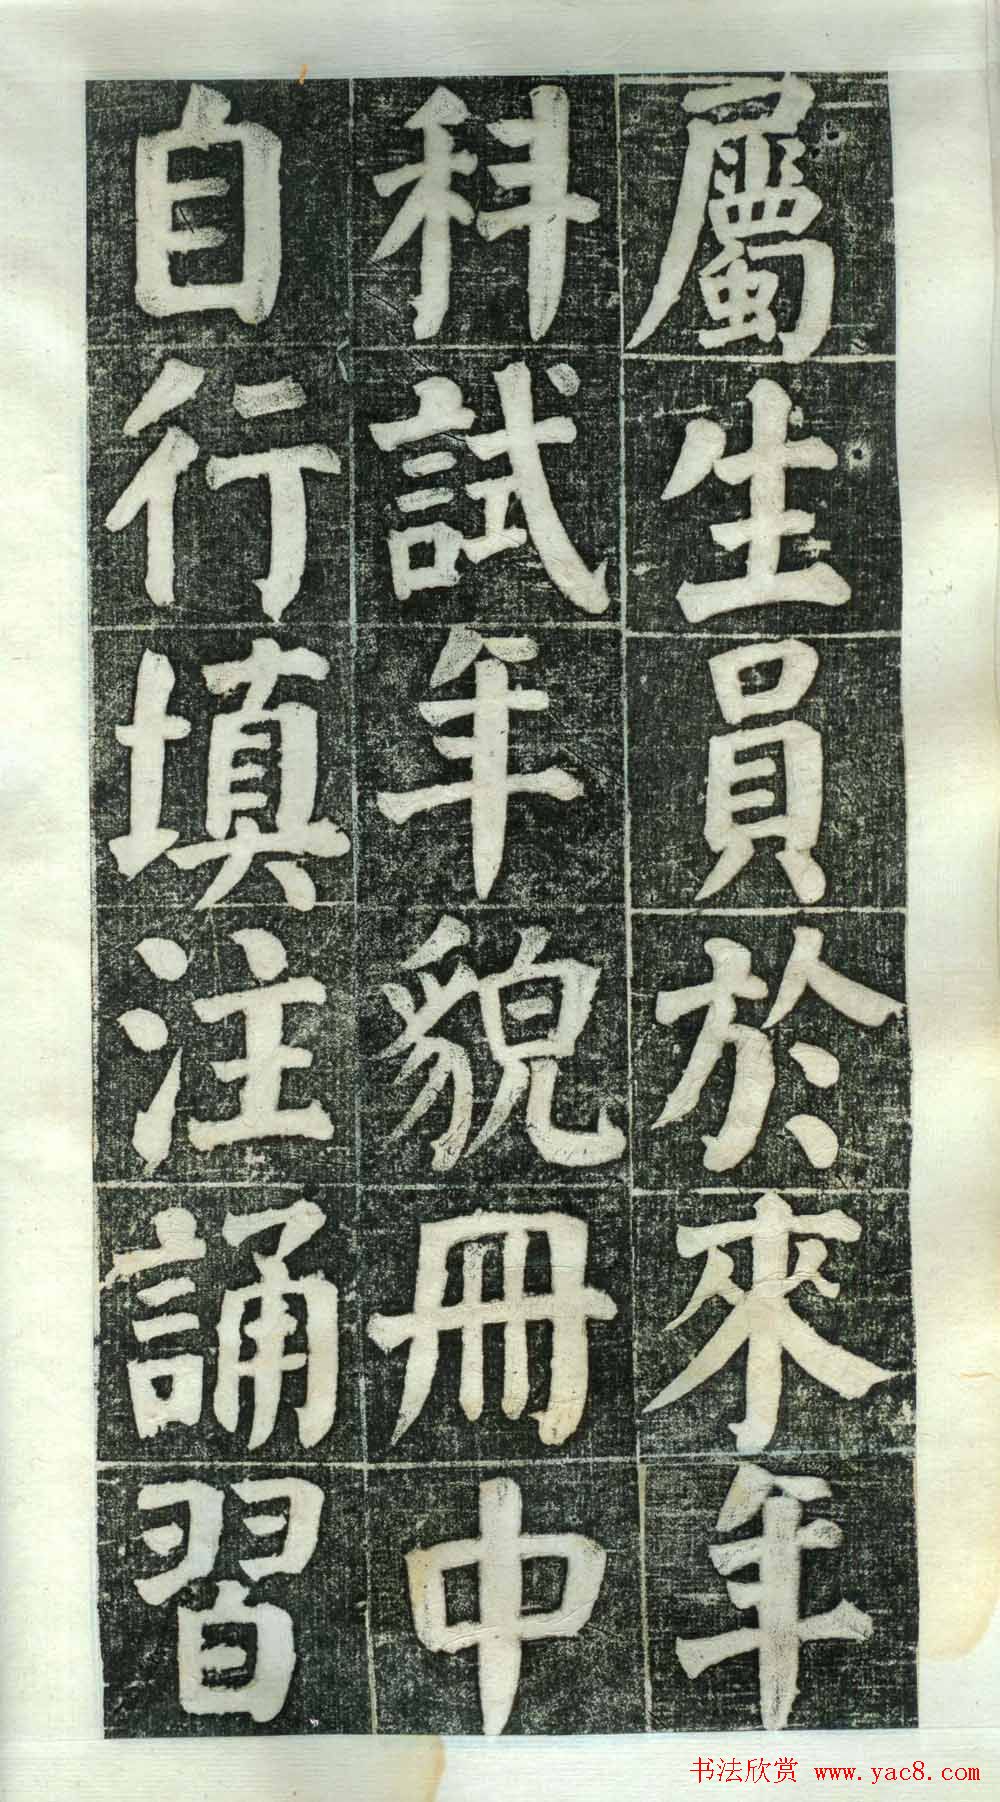 屬生員於來年
科試年貌冊中
自行填注誦習
书法欣赏 www.yac8.com